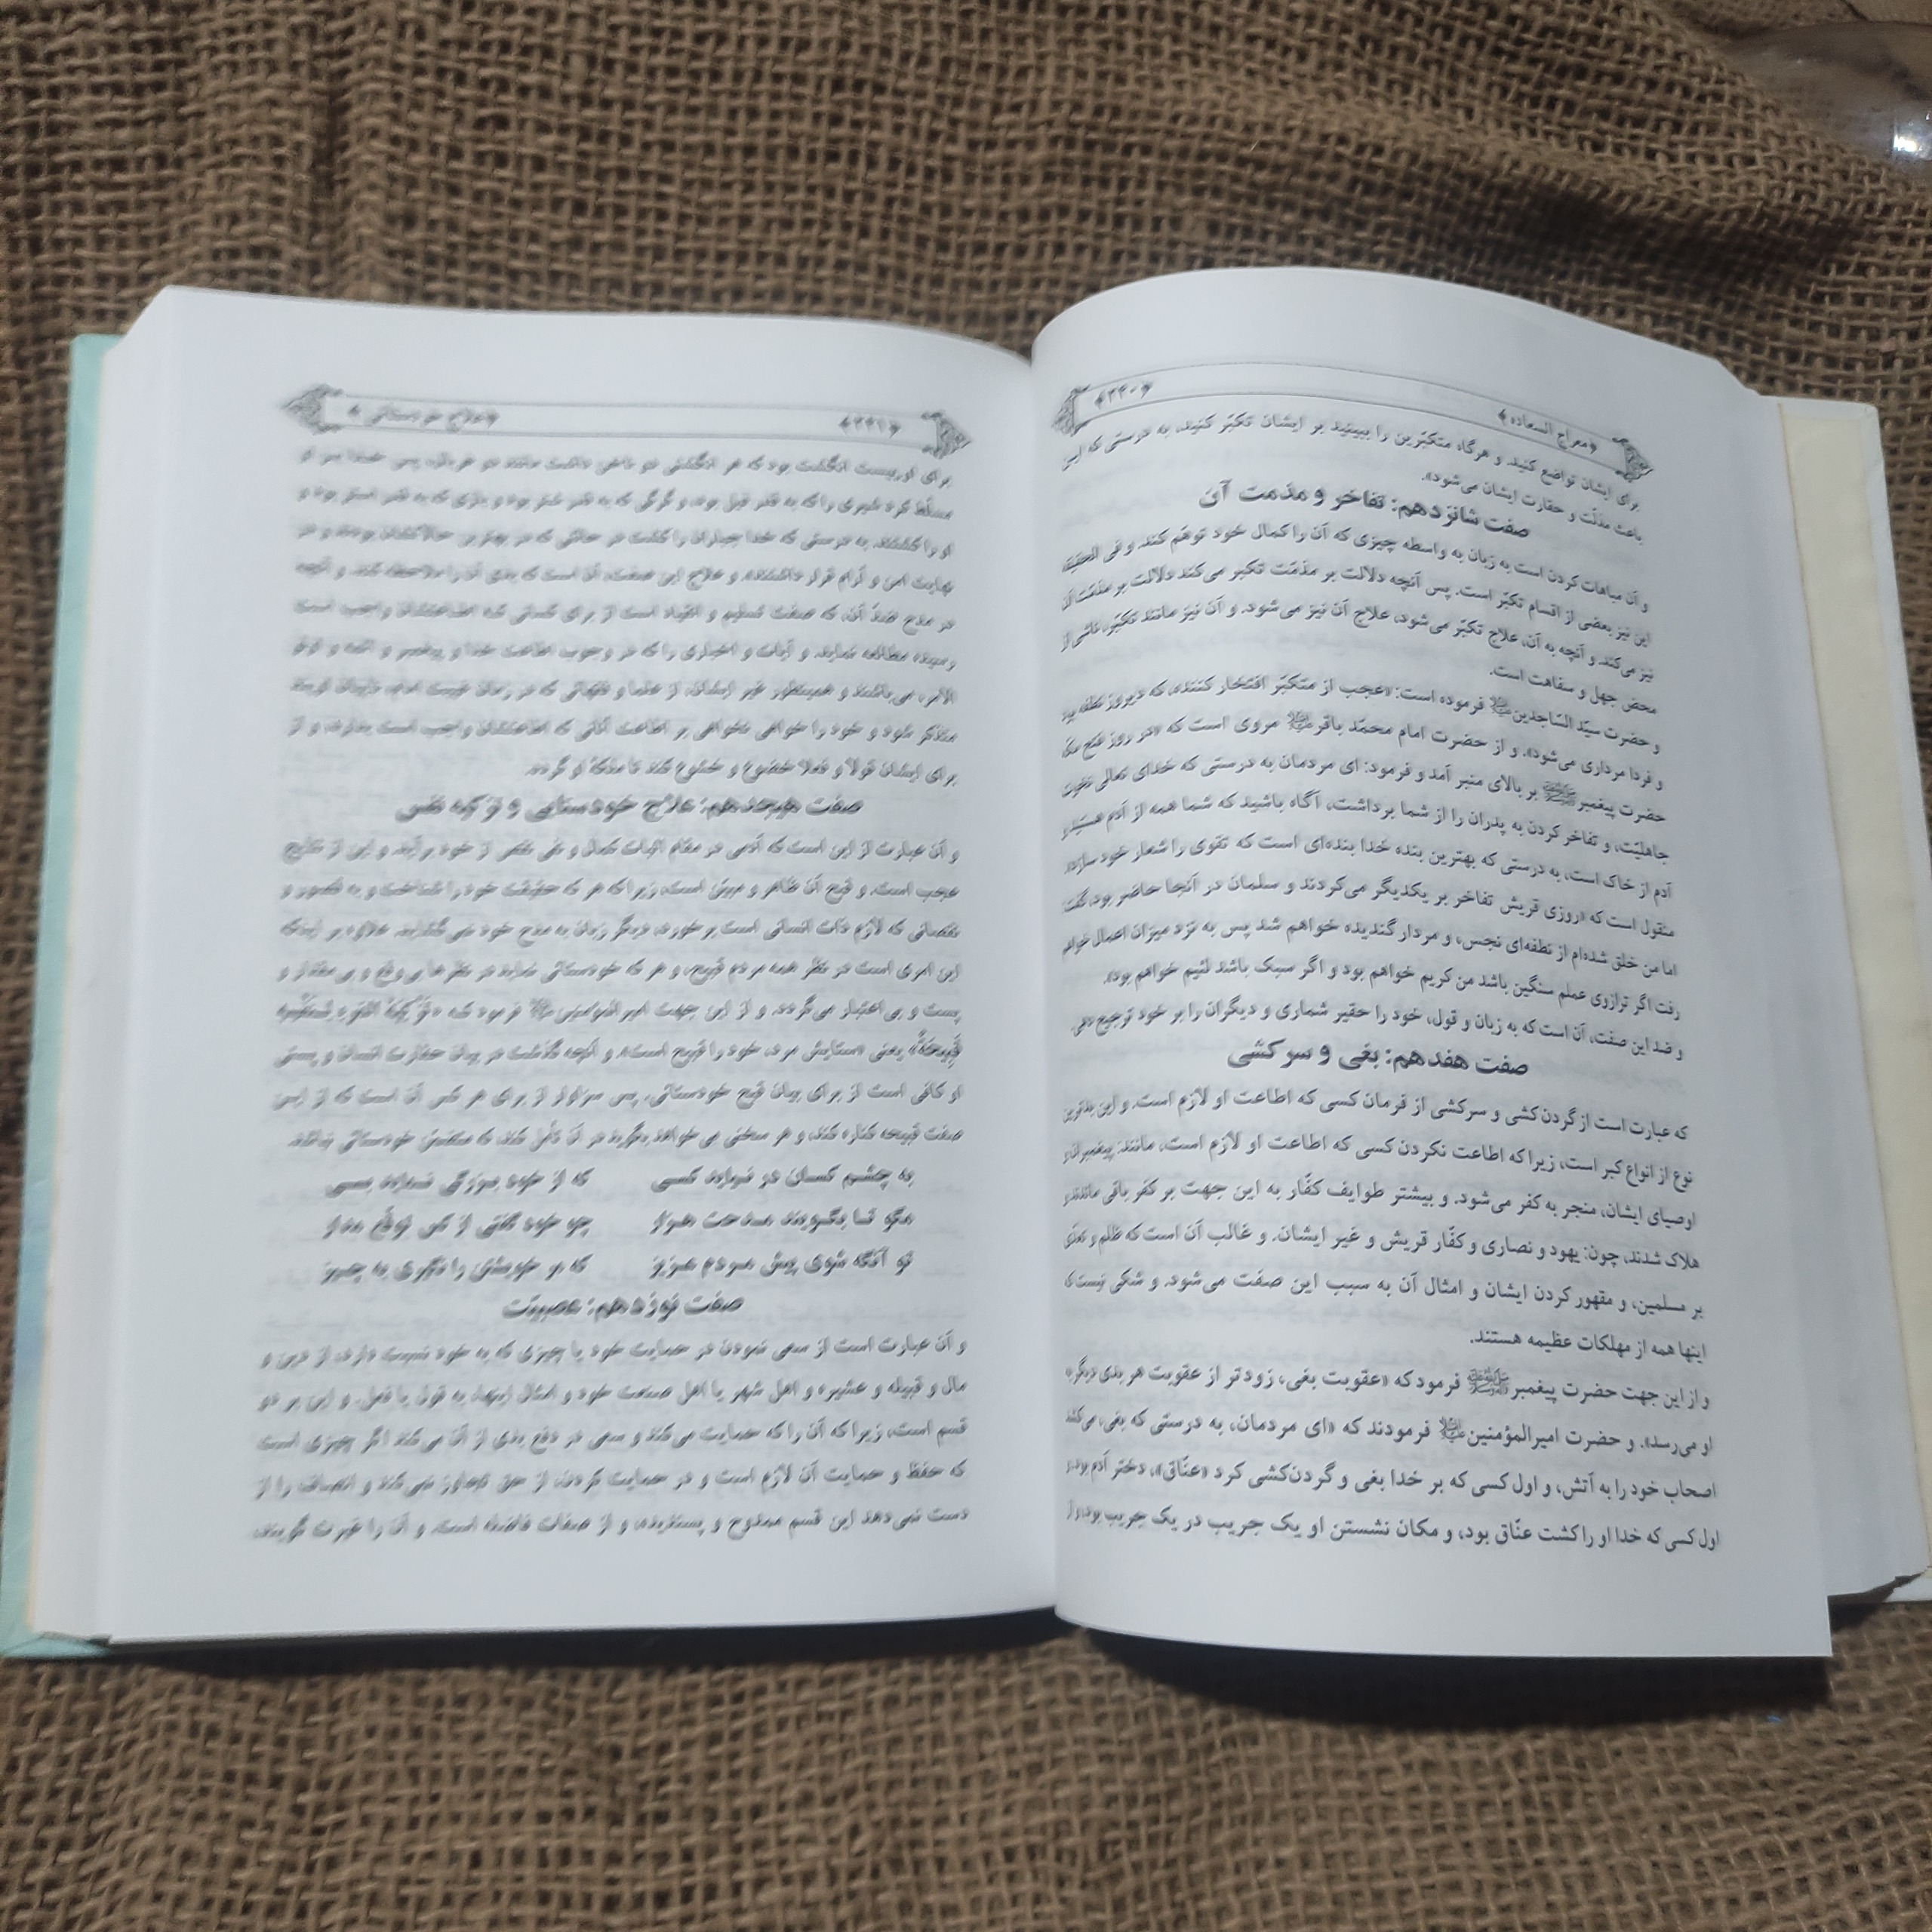 ﴿معراج السعاده﴾
﴿۲۴۰﴾
برای ایشان تواضع کنید و هرگاه متکبّرین را ببینید بر ایشان تکبّر کنید، به درستی که این
باعث مذلّت و حقارت ایشان می‌شود».
صفت شانزدهم: تفاخر و مذمت آن
و آن مباهات کردن است به زبان به واسطه چیزی که آن را کمال خود توهّم کند. و فی الحقیقه
این نیز بعضی از اقسام تکبّر است. پس آنچه دلالت بر مذمّت تکبر می‌کند دلالت بر مذمّت آن
نیز می‌کند و آنچه به آن، علاج تکبّر می‌شود، علاج آن نیز می‌شود. و آن نیز مانند تکبّر، ناشی از
محض جهل و سفاهت است.
و حضرت سیّد السّاجدین فرموده است: «عجب از متکبّر افتخار کننده، که دیروز نطفه بود
و فردا مرداری می‌شود». و از حضرت امام محمّد باقر مروی است که «در روز فتح مکّه
حضرت پیغمبر بر بالای منبر آمد و فرمود: ای مردمان به درستی که خدای تعالی نخوت
جاهلیّت، و تفاخر کردن به پدران را از شما برداشت، آگاه باشید که شما همه از آدم هستید و
آدم از خاک است، به درستی که بهترین بنده خدا بنده‌ای است که تقوی را شعار خود سازد».
منقول است که «روزی قریش تفاخر بر یکدیگر می‌کردند و سلمان در آنجا حاضر بود، گفت:
اما من خلق شده‌ام از نطفه‌ای نجس، و مردار گندیده خواهم شد پس به نزد میزان اعمال خواهم
رفت اگر ترازوی عملم سنگین باشد من کریم خواهم بود و اگر سبک باشد لئیم خواهم بود».
و ضد این صفت، آن است که به زبان و قول، خود را حقیر شماری و دیگران را بر خود ترجیح دهی.
صفت هفدهم: بغی و سرکشی
که عبارت است از گردن‌کشی و سرکشی از فرمان کسی که اطاعت او لازم است. و این بدترین
نوع از انواع کبر است، زیرا که اطاعت نکردن کسی که اطاعت او لازم است، مانند: پیغمبران و
اوصیای ایشان، منجر به کفر می‌شود. و بیشتر طوایف کفّار به این جهت بر کفر باقی ماندند و
هلاک شدند، چون: یهود و نصاری و کفّار قریش و غیر ایشان. و غالب آن است که ظلم و تعدّی
بر مسلمین، و مقهور کردن ایشان و امثال آن به سبب این صفت می‌شود. و شکی نیست که
اینها همه از مهلکات عظیمه هستند.
و از این جهت حضرت پیغمبر فرمود که «عقوبت بغی، زودتر از عقوبت هر بدی دیگر به
او می‌رسد». و حضرت امیرالمؤمنین فرمودند که «ای مردمان، به درستی که بغی، می‌کشد
اصحاب خود را به آتش، و اول کسی که بر خدا بغی و گردن‌کشی کرد «عنّاق»، دختر آدم بود. و
اول کسی که خدا او را کشت عنّاق بود، و مکان نشستن او یک جریب در یک جریب بود، و از
﴿۲۴۱﴾
﴿علاج خودستائی﴾
برای او بیست انگشت بود که هر انگشتی دو ناخن داشت مانند دو پس خدا بر او
مسلّط کرد شیری را که به قدر فیل بود، و گرگی که به قدر شتر بود و بازی که به قدر استر بود و
او را کشتند. به درستی که خدا جبّاران را کشت در حالتی که در بهترین حالاتشان بودند و در
نهایت امن و آرام قرار داشتند». و علاج این صفت، آن است که بدی آن را ملاحظه کند، و آنچه
در مدح ضدّ آن، که صفت تسلیم و انقیاد است از برای کسانی که اطاعتشان واجب است
رسیده مطالعه نماید. و آیات و اخباری را که در وجوب اطاعت خدا و پیغمبر و ائمه و اولو
الامر، می‌باشند و همینطور غیر ایشان، از علما و فقهائی که در زمان غیبت امام، نایبان اویند
متذکر شود و خود را خواهی نخواهی بر اطاعت آنانی که اطاعتشان واجب است بدارد، و از
برای ایشان قولاً و فعلاً خضوع و خشوع کند تا ملکهٔ او گردد.
صفت هیجدهم: علاج خودستایی و تزکیه نفس
و آن عبارت از این است که آدمی در مقام اثبات کمال و نفی نقص از خود برآید و این از نتایج
عجب است. و قبح آن ظاهر و مبیّن است، زیرا که هر که حقیقت خود را شناخت و به قصور و
نقصانی که لازم ذات انسانی است برخورد، دیگر زبان به مدح خود نمی‌گشاید. علاوه بر اینکه
این امری است در نظر همه مردم قبیح، و هر که خودستائی نماید در نظرها بی وقع و بی مقدار و
پست و بی اعتبار می‌گردد. و از این جهت امیر المؤمنین فرمود که
یعنی «ستایش مرد، خود را قبیح است». و آنچه گذشت در بیان حقارت انسان و پستی
او کافی است از برای بیان قبح خودستائی. پس سزاوار از برای هر کس آن است که از این
صفت قبیحه کناره کند، و هر سخنی می‌خواهد بگوید در آن تأمّل کند که متضمّن خودستائی نباشد.
به چشم کسان در نیاید کسی    که از خود بزرگی نماید بسی
مگو تا بگویند مدحت هزار    چو خود گفتی از کس توقّع مدار
تو آنگه شوی پیش مردم عزیز    که مر خویشتن را نگیری به چیز
صفت نوزدهم: عصبیّت
و آن عبارت است از سعی نمودن در حمایت خود یا چیزی که به خود نسبت دارد، از دین و
مال و قبیله و عشیره و اهل شهر یا اهل صنعت خود و امثال اینها، به قول یا فعل. و این بر دو
قسم است، زیرا که آن را که حمایت می‌کند و سعی در دفع بدی از آن می‌کند اگر چیزی است
که حفظ و حمایت آن لازم است و در حمایت کردن، از حق تجاوز نمی‌کند و انصاف را از
دست نمی‌دهد این قسم ممدوح و پسندیده، و از صفات فاضله است. و آن را غیرت گویند.